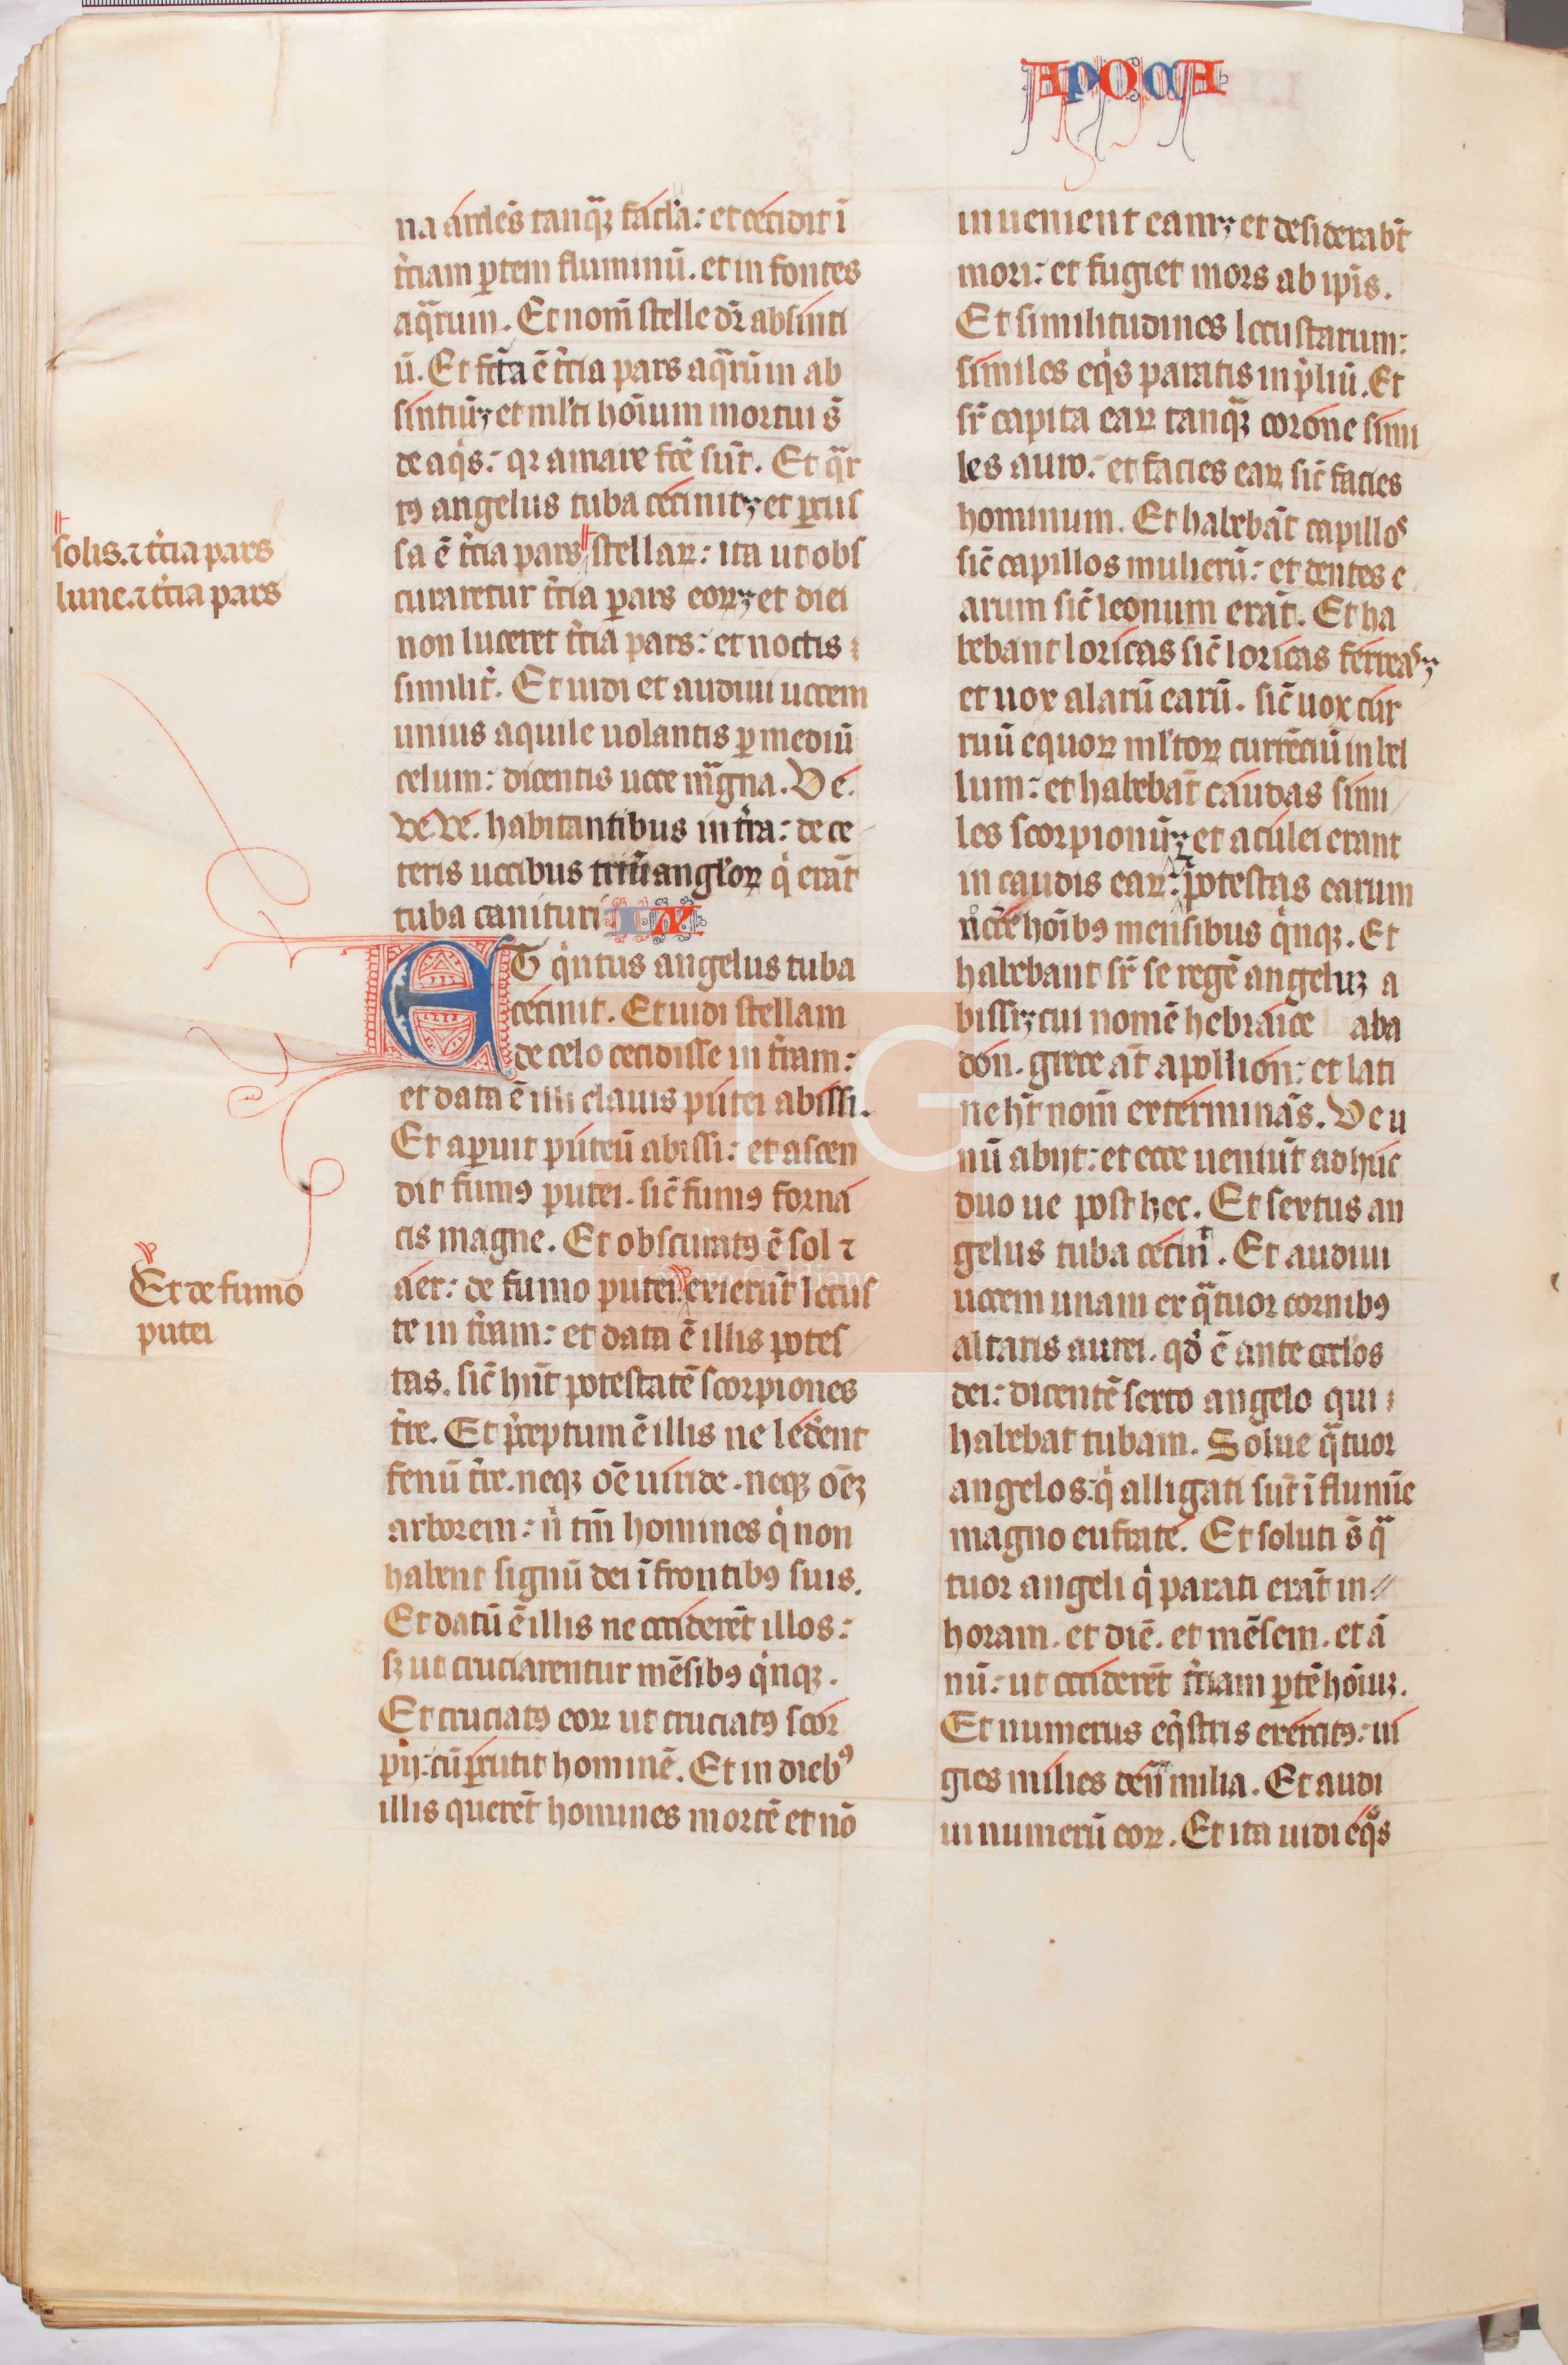 APOCA
na ardēs tanq̄ꝫ facl'a: et cecidit ī
t̄ciam ꝑtem fluminū. et in fontes
aq̄rum. Et nom̄ stelle dr̄ absinti
ū. Et fc̄ta ē t̄cia pars aq̄rum in ab
sintiū; et ml'ti hoīum mortui s̄
de aq̇s: qr amare fc̄e sūt. Et q̄r
tꝰ angelus tuba cecinit; et ꝑcus
solis. ⁊ t̄cia pars
lune. ⁊ t̄cia pars
sa ē t̄cia pars stellaꝝ: ita ut obs
curaretur t̄cia pars eoꝝ; et diei
non luceret t̄cia pars: et noctis
similit̄. Et uidi et audiui uocem
unius aquile uolantis ꝑ mediū
celum: dicentis uoce magna. Ve.
ve. ve. habitantibus in t̄ra: de ce
teris uocibus triū angl'oꝝ q̇ erāt
tuba canituri IX
ET q̇ntus angelus tuba
cecinit. Et uidi stellam
de celo cecidisse in t̄ram:
et data ē illi clauis putei abissi.
Et aꝑuit puteū abissi: et ascen
dit fumꝰ putei. sic̄ fumꝰ forna
cis magne. Et obscuratꝰ ē sol ⁊
aer: de fumo putei. exierūt locus
Et de fumo
putei
te in t̄ram: et data ē illis potes
tas. sic̄ hn̄t potestatē scorpiones
t̄re. Et p̄ceptum ē illis ne lederent
fenū t̄re. neqꝫ oē uiride. neqꝫ oēꝫ
arborem: n̄ tm̄ homines q̇ non
habent signū dei ī frontibꝰ suis.
Et datū ē illis ne occiderēt illos:
sꝫ ut cruciarentur mēsibꝰ q̇nqꝫ.
Et cruciatꝰ eoꝝ ut cruciatꝰ scor
pij: cū ꝑcutit hominē. Et in diebꝰ
illis querēt homines mortē et nō
inuenient eam; et desiderabt̄
mori: et fugiet mors ab ip̄is.
Et similitudines locustarum:
similes eq̇s paratis in p̄liū. Et
sr̄ capita eaꝝ tanq̄ꝫ corone simi
les auro: et facies eaꝝ sic̄ facies
hominum. Et habebāt capillos
sic̄ capillos mulierū: et dentes e
arum sic̄ leonum erāt. Et ha
bebant loricas sic̄ loricas ferreas;
et uox alarū earū. sic̄ uox cur
ruū equoꝝ ml'toꝝ currētiū in bel
lum: et habebāt caudas simi
les scorpionū; et aculei erant
in caudis eaꝝ: potestas earum
nocē hoībꝰ mensibus q̇nqꝫ. Et
habebant sr̄ se regē angeluꝫ a
bissi; cui nomē hebraice aba
don. grece at̄ apollion: et lati
ne hn̄t nom̄ exterminās. Ve u
nū abijt: et ecce ueniūt adhuc
duo ue post hec. Et sextus an
gelus tuba cecin̄. Et audiui
uocem unam ex q̄tuor cornibꝰ
altaris aurei. qd̄ ē ante oc̄los
dei: dicentē sexto angelo qui
habebat tubam. Solue q̄tuor
angelos: q̇ alligati sūt ī flumīe
magno eufrate. Et soluti s̄ q̄
tuor angeli q̇ parati erāt in
horam. et diē. et mēsem. et ā
nū: ut occiderēt t̄ciam ꝑtē hoīuꝫ.
Et numerus eq̄stris exercitꝰ: ui
gies milies den̄ milia. Et audi
ui numerū eoꝝ. Et ita uidi eq̄s